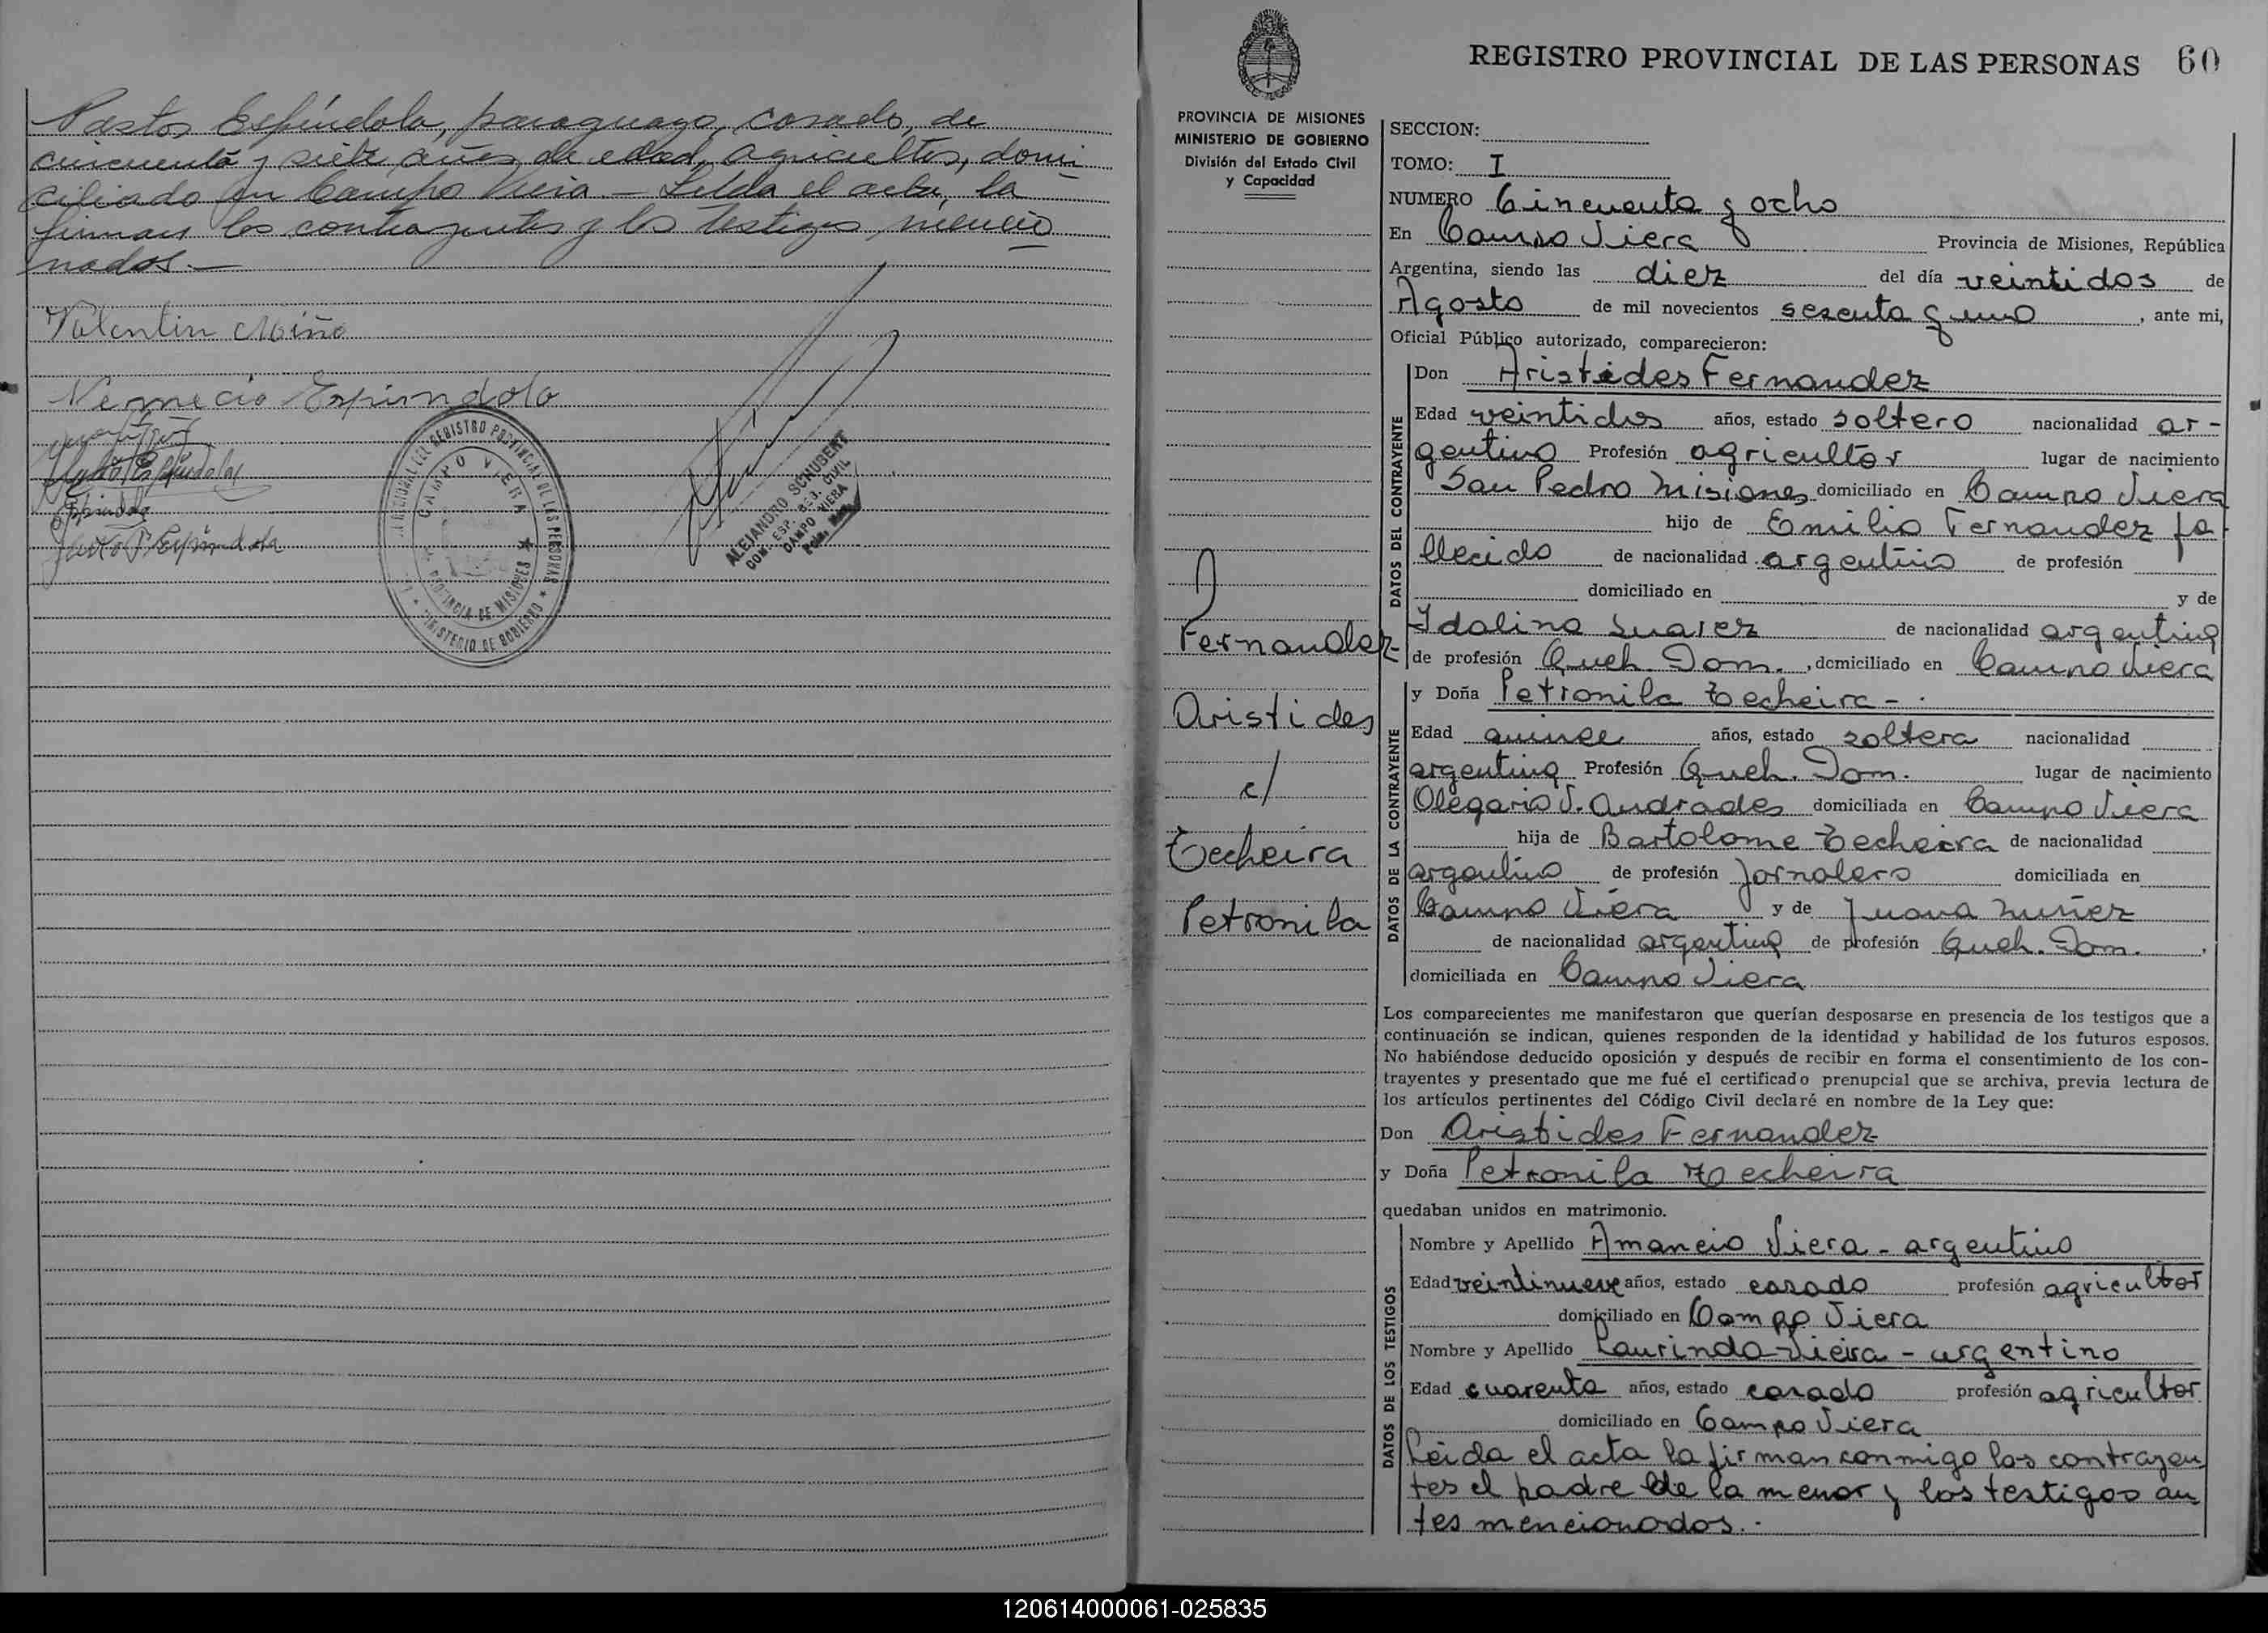 Pastor Espíndola, paraguayo, casado, de
cincuenta y siete años de edad, agricultor, domi
ciliado en Campo Viera — Leída el acta, la
firman los contrayentes y los testigos mencio
nados.—
Valentin Miño
Nemecio Espindola
Espindola
Justo P. Espindola
REGISTRO PROVINCIAL DE LAS PERSONAS
CAMPO VIERA
PROVINCIA DE MISIONES
MINISTERIO DE GOBIERNO
ALEJANDRO SCHUBERT
CAMPO VIERA
REGISTRO PROVINCIAL DE LAS PERSONAS 60
PROVINCIA DE MISIONES
MINISTERIO DE GOBIERNO
División del Estado Civil
y Capacidad
Fernandez
Aristides
c/
Techeira
Petronila
SECCION:
TOMO: I
NUMERO Cincuenta y ocho
En Campo Viera Provincia de Misiones, República
Argentina, siendo las diez del día veintidos de
Agosto de mil novecientos sesenta y uno, ante mi,
Oficial Público autorizado, comparecieron:
DATOS DEL CONTRAYENTE
Don Aristides Fernandez
Edad veintidos años, estado soltero nacionalidad ar-
gentino Profesión agricultor lugar de nacimiento
San Pedro Misiones domiciliado en Campo Viera
hijo de Emilio Fernandez fa
llecido de nacionalidad argentino de profesión
domiciliado en y de
Idalina Suarez de nacionalidad argentina
de profesión Queh. Dom., domiciliado en Campo Viera
DATOS DE LA CONTRAYENTE
y Doña Petronila Techeira -
Edad quince años, estado soltera nacionalidad
argentina Profesión Queh. Dom. lugar de nacimiento
Olegario V. Andrades domiciliada en Campo Viera
hija de Bartolome Techeira de nacionalidad
argentino de profesión Jornalero domiciliada en
Campo Viera y de Juana Nuñez
de nacionalidad argentina de profesión Queh. Dom.,
domiciliada en Campo Viera
Los comparecientes me manifestaron que querían desposarse en presencia de los testigos que a
continuación se indican, quienes responden de la identidad y habilidad de los futuros esposos.
No habiéndose deducido oposición y después de recibir en forma el consentimiento de los con-
trayentes y presentado que me fué el certificado prenupcial que se archiva, previa lectura de
los artículos pertinentes del Código Civil declaré en nombre de la Ley que:
Don Aristides Fernandez
y Doña Petronila Techeira
quedaban unidos en matrimonio.
DATOS DE LOS TESTIGOS
Nombre y Apellido Amancio Viera - argentino
Edad veintinueve años, estado casado profesión agricultor
domiciliado en Campo Viera
Nombre y Apellido Laurindo Vieira - argentino
Edad cuarenta años, estado casado profesión agricultor
domiciliado en Campo Viera
Leida el acta la firman conmigo los contrayen
tes el padre de la menor y los testigos an
tes mencionados.-
120614000061-025835